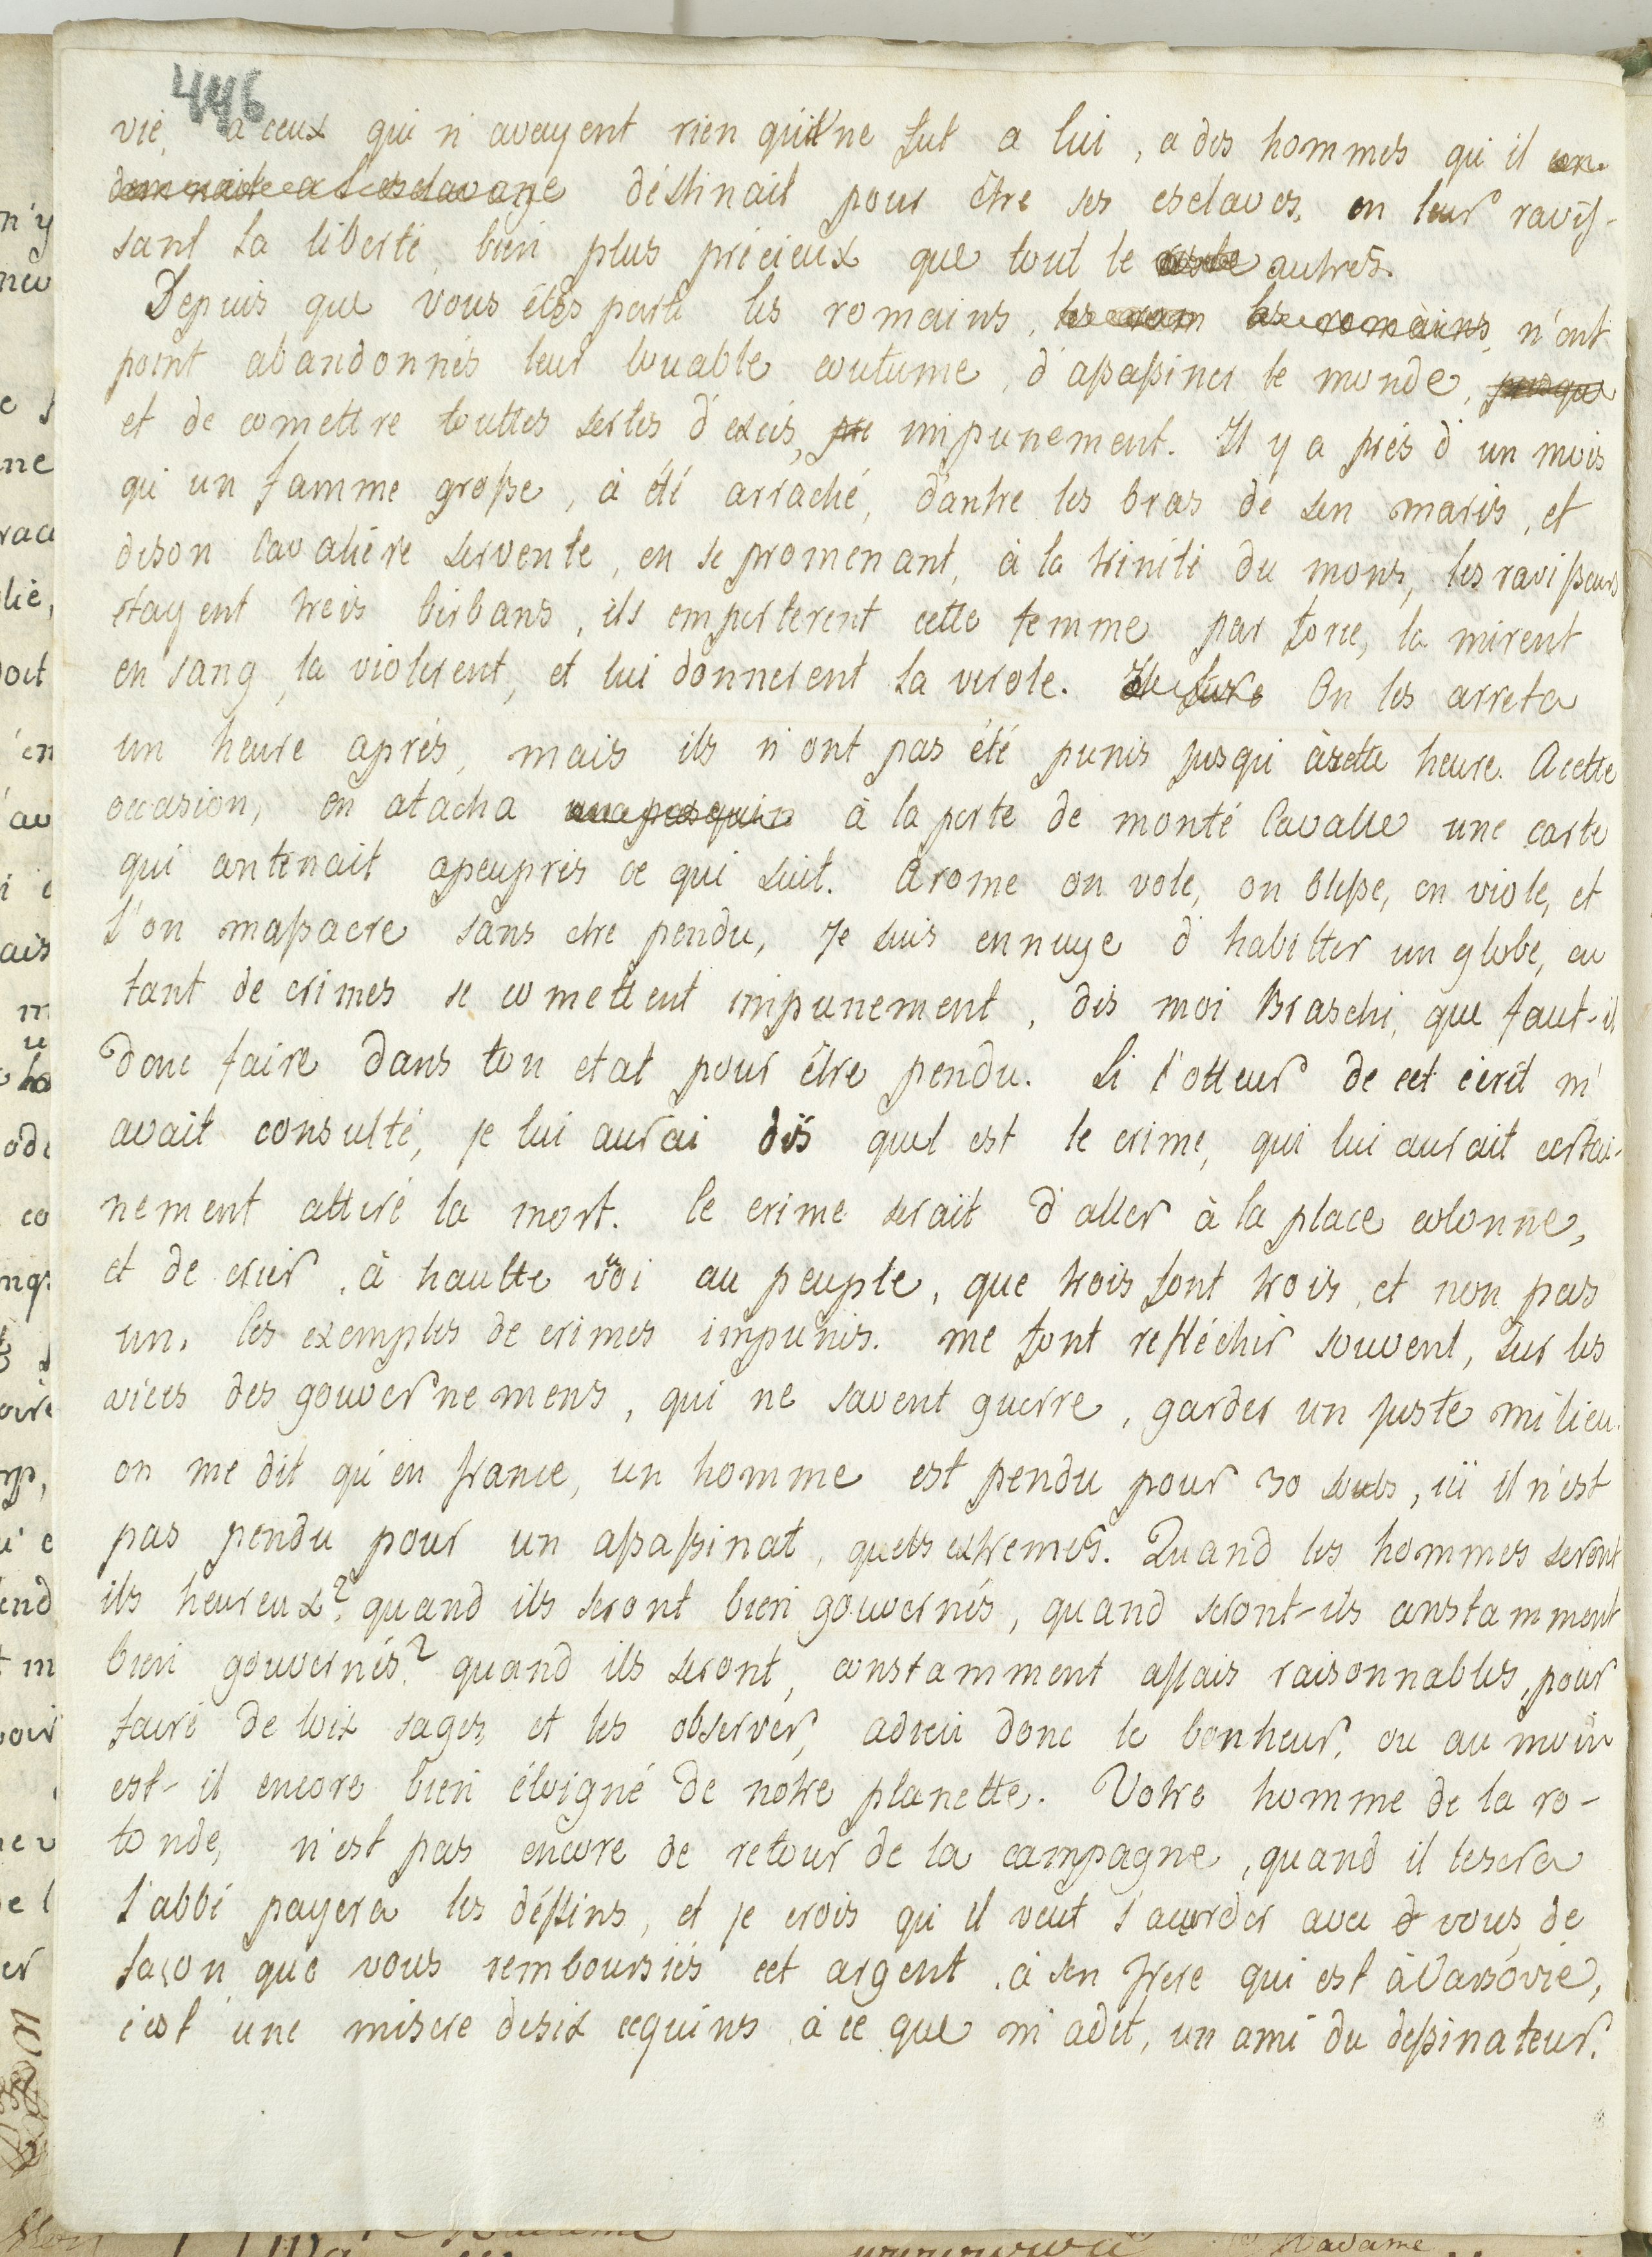 446
vie, a ceux qui n'avayent rien quil ne fut a lui, a des hommes qu'il con
damnait a l'esclavage déstinait pour être ses esclaves, en leur ravis-
sant la liberté, bien plus précieux que tout le reste autres.
Depuis que vous étes parti les romains, les rom les romains, n'ont
point abandonnés leur louable coutume, d'assassiner le monde, presque
et de comettre touttes sortes d'exces, pre impunement. Il y a près d'un mois
qu'un famme grosse, à été arraché, d'antre les bras de son maris, et
de son Cavaliére servente, en se promenant, à la trinité du mons, les ravisseurs
etayent trois birbans, ils emporterent cette femme par force, la mirent
en sang, la violerent, et lui donnerent la verole. On les arreta
un heure aprés, mais ils n'ont pas été punis jusqu'à cette heure. A cette
occasion, on atacha une pasquin à la porte de monté Cavalle une carte
qui contenait apeuprès ce qui suit. A rome on vole, on blesse, on viole, et
l'on massacre sans etre pendu, Je suis ennuye d'habitter un globe, ou
tant de crimes se comettent impunement, dis moi Braschi, que faut-il
donc faire dans ton etat pour être pendu. Si l'otteur de cet ecrit m'
avait consulté, je lui aurai dis quel est le crime, qui lui aurait certai-
nement attiré la mort. le crime serait d'aller à la place colonne,
et de crier, à hautte voi au peuple, que trois font trois, et non pas
un. les exemples de crimes impunis. me font refléchir souvent, sur les
vices des gouvernemens, qui ne savent guerre, garder un juste milieu.
on me dit qu'en france, un homme est pendu pour 30 souls, içi il n'est
pas pendu pour un assassinat, quels extremes. Quand les hommes seront
ils heureux? quand ils seront bien gouvernés, quand seront-ils constamment
bien gouvernés? quand ils seront, constamment assais raisonnables, pour
faire de loix sages, et les observer, adieu donc le bonheur, ou au moin
est-il encore bien éloigné de notre planette. Votre homme de la ro-
tonde, n'est pas encore de retour de la campagne, quand il lesera
l'abbé payera les déssins, et je crois qu'il veut s'acorder avec d vous de
façon que vous remboursiés cet argent, à son frere qui est à Varsovie,
c'est une misere desix cequins à ce que m'adit, un ami du dessinateur.